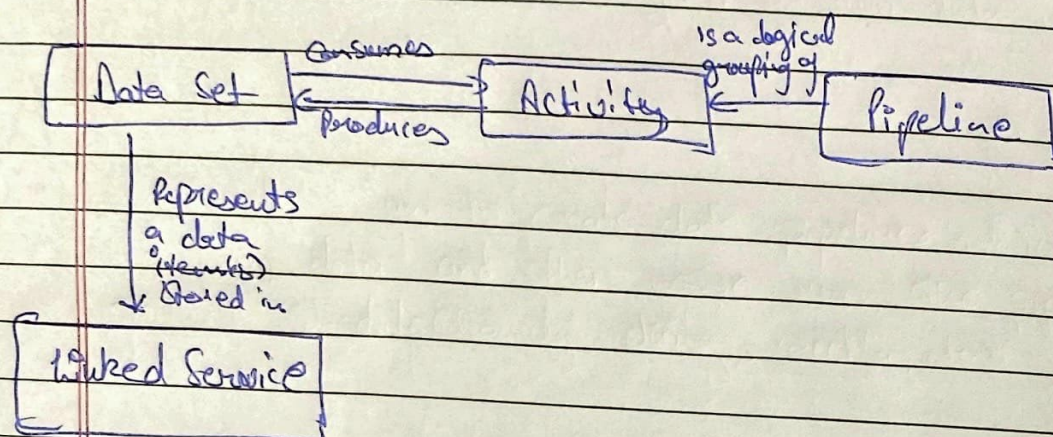 Data Set
Consumes
Produces
Activity
is a logical
grouping of
Pipeline
Represents
a data
item(s)
Stored in
Linked Service